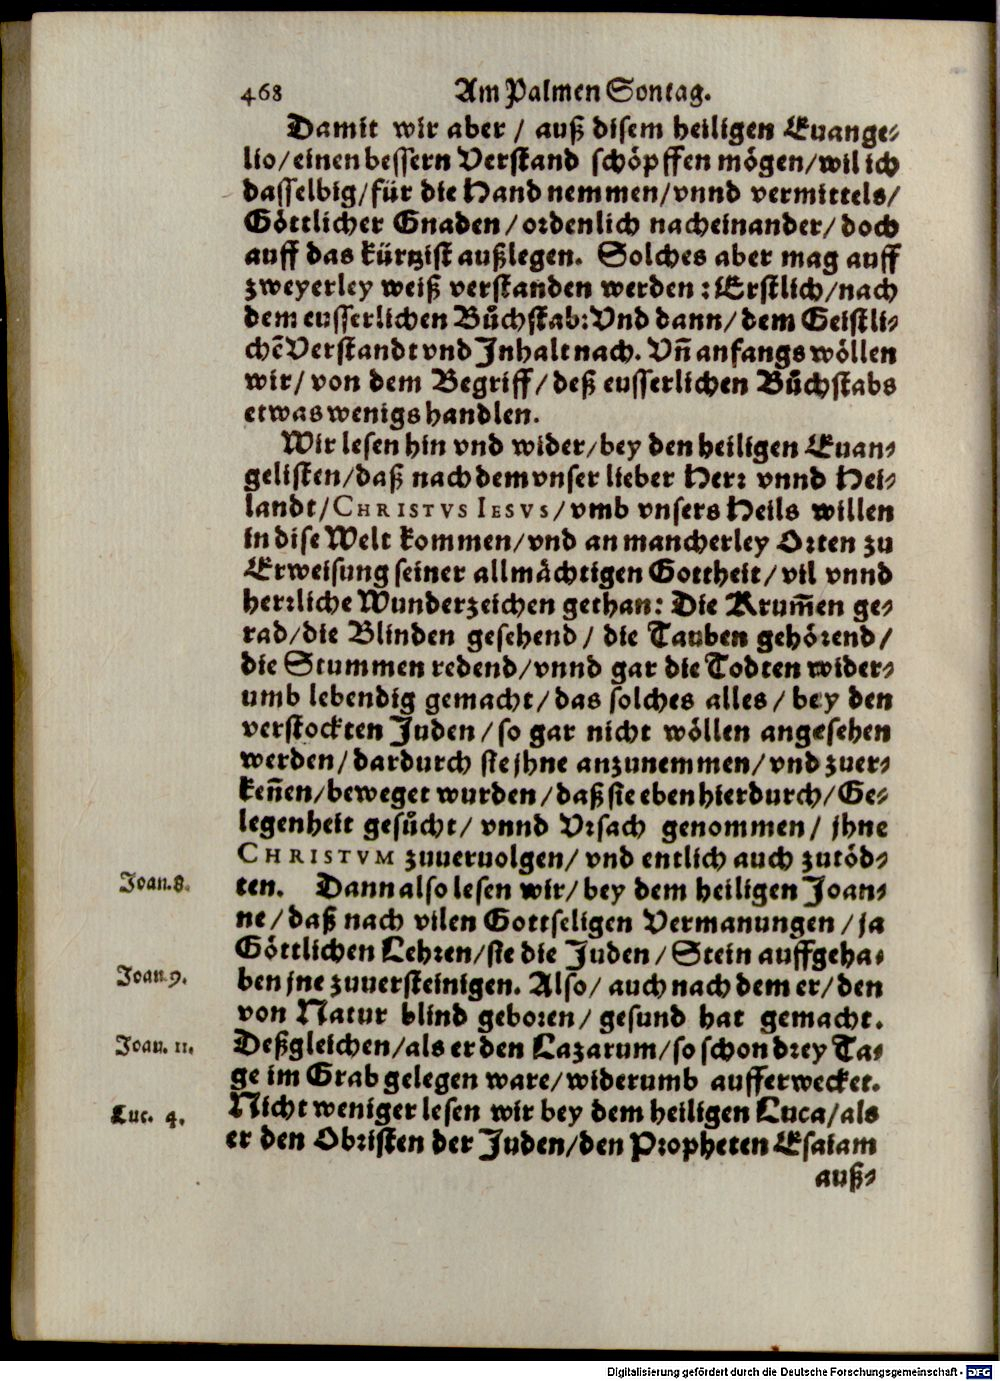 468 Am Palmen Sontag.
Damit wir aber / auß disem heiligen Euange-
lio/einen bessern Verstand schöpffen mögen/wil ich
dasselbig/für die Hand nemmen/vnnd vermittels/
Göttlicher Gnaden/ordenlich nacheinander/doch
auff das kürtzist außlegen. Solches aber mag auff
zweyerley weiß verstanden werden: Erstlich/nach
dem eusserlichen Bůchstab: Vnd dann/dem Geistli-
chẽ Verstandt vnd Inhalt nach. Vñ anfangs wöllen
wir/von dem Begriff/deß eusserlichen Bůchstabs
etwas wenigs handlen.
Wir lesen hin vnd wider/bey den heiligen Euan-
gelisten/daß nach dem vnser lieber Herr vnnd Hei-
landt/CHRISTVS IESVS/vmb vnsers Heils willen
in dise Welt kommen/vnd an mancherley Orten zu
Erweisung seiner allmächtigen Gottheit/vil vnnd
herrliche Wunderzeichen gethan: Die Krum̃en ge-
rad/die Blinden gesehend/die Tauben gehörend/
die Stummen redend/vnnd gar die Todten wider-
umb lebendig gemacht/das solches alles/bey den
verstockten Juden/so gar nicht wöllen angesehen
werden/dardurch sie jhne anzunemmen/vnd zuer-
keñen/beweget wurden/daß sie eben hierdurch/Ge-
legenheit gesůcht/vnnd Vrsach genommen/jhne
CHRISTVM zuueruolgen/vnd entlich auch zutöd-
Joan. 8. ten. Dann also lesen wir/bey dem heiligen Joan-
ne/daß nach vilen Gottseligen Vermanungen/ja
Göttlichen Lehren/sie die Juden/Stein auffgeha-
Joan. 9. ben jne zuuersteinigen. Also/auch nach dem er/den
von Natur blind geboren/gesund hat gemacht.
Joan. 11. Deßgleichen/als er den Lazarum/so schon drey Ta-
ge im Grab gelegen ware/widerumb aufferwecket.
Luc. 4. Nicht weniger lesen wir bey dem heiligen Luca/als
er den Obristen der Juden/den Propheten Esaiam
auß-
Digitalisierung gefördert durch die Deutsche Forschungsgemeinschaft - DFG